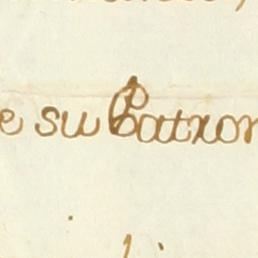 e su Patron